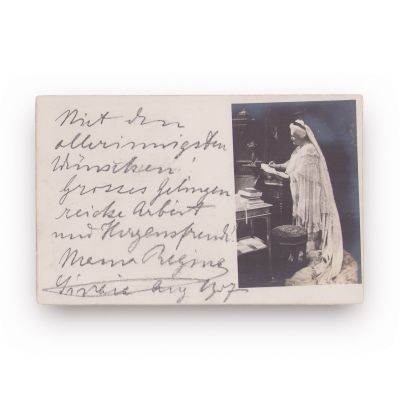 Mit den
allerinnigsten
Wünschen!
Grosses Gelingen
reiche Arbeit
und Herzensfreude!
Mama Regina
Sinaia Aug 1907